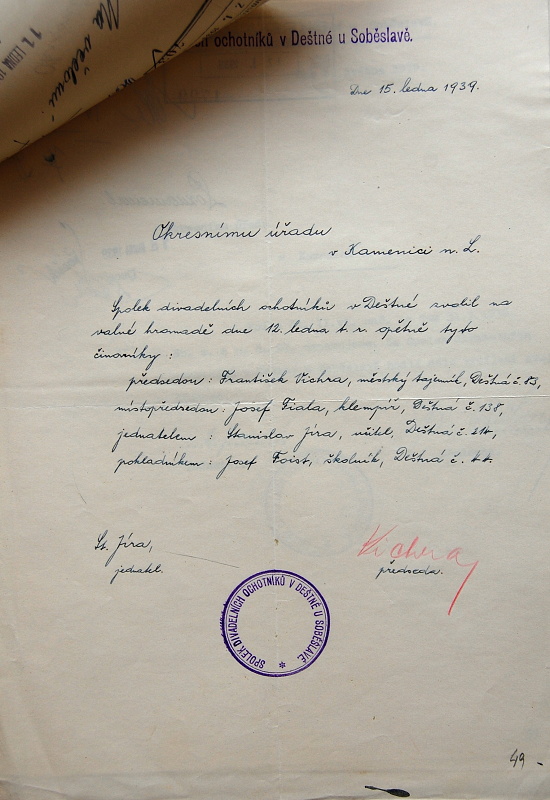 Na vědomí
11. LEDNA
ochotníků v Deštné u Soběslavě.
Dne 15. ledna 1939.
Okresnímu úřadu
v Kamenici n. L.
Spolek divadelních ochotníků v Deštné zvolil na
valné hromadě dne 12. ledna t. r. opětně tyto
činovníky :
předsedou : František Vichra, městský tajemník, Deštná č. 83,
místopředsedou : Josef Fiala, klempíř, Deštná č. 138,
jednatelem : Stanislav Jíra, učitel, Deštná č. 214,
pokladníkem : Josef Foist, školník, Deštná č. 44.
St. Jíra,
jednatel.
Vichra
předseda.
SPOLEK DIVADELNÍCH OCHOTNÍKŮ V DEŠTNÉ U SOBĚSLAVĚ. *
49